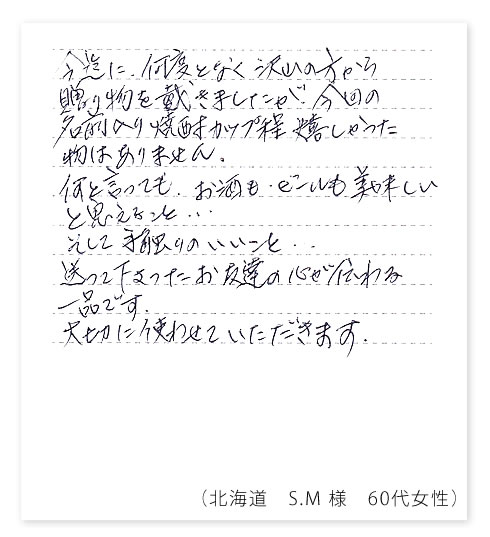 今迄に、何度となく沢山の方から
贈り物を戴きましたが、今回の
名前入り焼酎カップ程 嬉しかった
物はありません。
何と言っても、お酒も・ビールも美味しい
と思えること・・・
そして手触りのいいこと・・
送って下さったお友達の心が伝わる
一品です.
大切に使わせていただきます.
（北海道　S.M 様　60代女性）